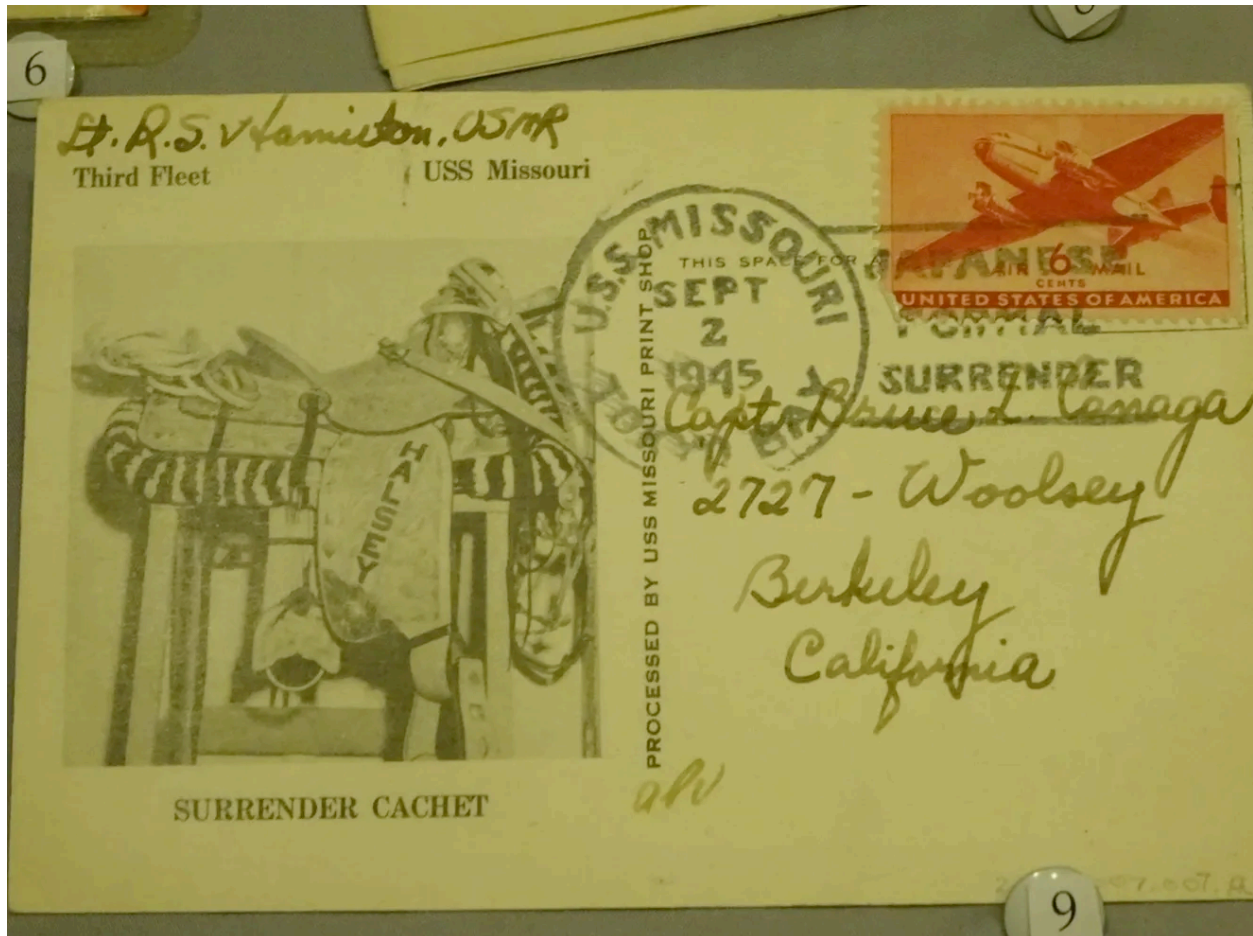 6
Lt. R.S. Hamilton, USNR
Third Fleet USS Missouri
HALSEY
SURRENDER CACHET
PROCESSED BY USS MISSOURI PRINT SHOP
THIS SPACE FOR
U.S.S. MISSOURI
SEPT
2
1945
TOKYO BAY
JAPANESE
FORMAL
SURRENDER
AIR 6 MAIL
CENTS
UNITED STATES OF AMERICA
Capt. Bruce L. Canaga
2727 - Woolsey
Berkeley
California
9